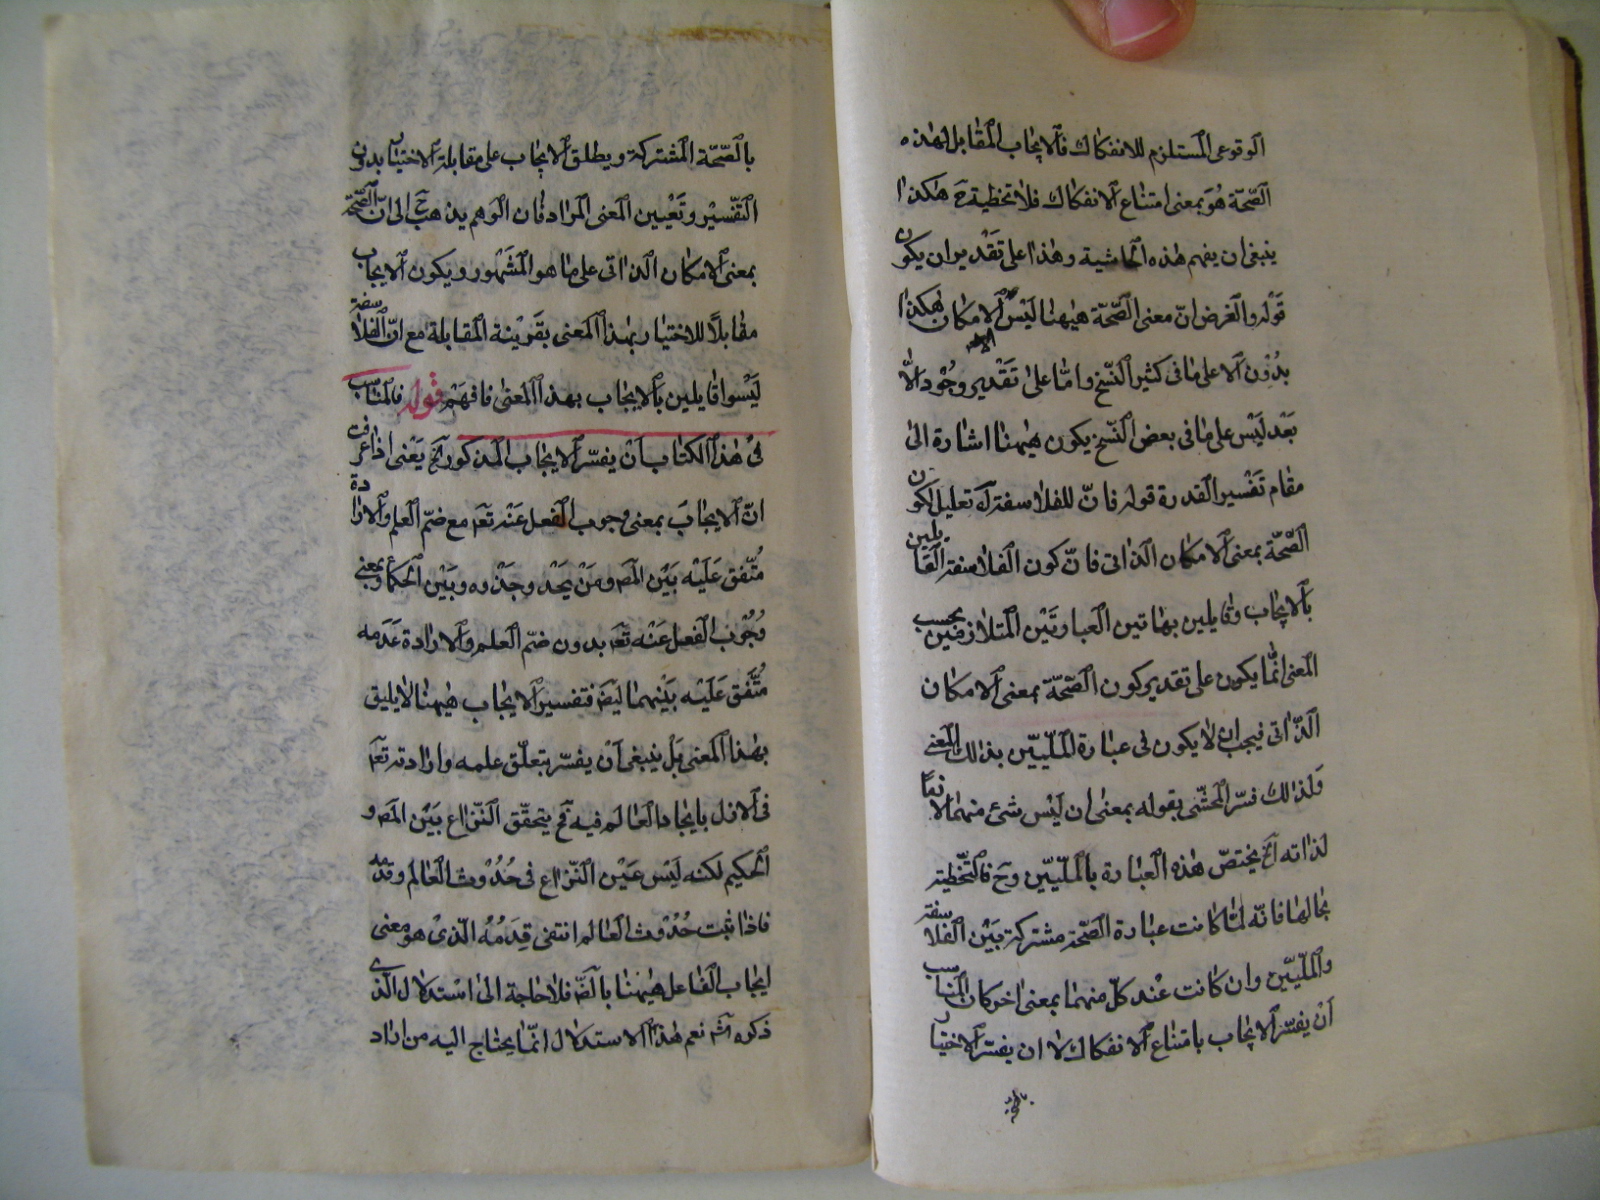 الوقوعى المستلزم للانفكاك فالايجاب المقابل لهذه
الصحّة هو بمعنى امتناع الانفكاك فلا تخطية ح هكذا
ينبغى ان يفهم هذه الحاشية وهذا على تقدير ان يكون
قوله والغرض انّ معنى الصّحّة هيهنا ليس الامكان هكذا
بدون الا على ما فى كثير النسخ وامّا على تقدير وجود الاّ
بعد ليس على ما فى بعض النسخ يكون هيهنا اشارة الى
مقام تفسير القدرة قوله فانّ للفلاسفة آه تعليل لكون
الصّحّة بمعنى الامكان الذاتى فانّ كون الفلاسفة القايلين
بالايجاب وقايلين بهاتين العبارتين المتلازمين بحسب
المعنى انّما يكون على تقدير كون الصّحّة بمعنى الامكان
الذّاتى فيجب ان لا يكون فى عبارة الملّيّين بذلك المعنى
ولذلك فسّر المحشّى بقوله بمعنى ان ليس شئ منهما لازما
لذاته آخ يختصّ هذه العبارة بالملّيّين وح فالتخطية
بحالها فانّه لمّا كانت عبارة الصّحة مشتركة بين الفلاسفة
والملّيّين وان كانت عند كلّ منهما بمعنى اخر كان المناسب
أن يفسّر الايجاب بامتناع الانفكاك لا ان يفسّر الاختيار
بالصّحّة المشتركة ويطلق الايجاب على مقابلة الاختيار بدون
التفسير وتعيين المعنى المراد فان الوهم يذهب ح الى انّ الصّحّة
بمعنى الامكان الذاتى على ما هو المشهور ويكون الايجاب
مقابلاً للاختيار بهذا المعنى بقرينة المقابلة مع انّ الفلاسفة
ليسوا قايلين بالايجاب بهذا المعنى فافهم قوله فالمناسب
فى هذا الكتاب أن يفسّر الايجاب المذكور آخ يعنى اذا عرف
انّ الايجاب بمعنى وجوب الفعل عنه تعه مع ضمّ العلم والارادة
متّفق عليه بين المصه ومن يحذو حذوه وبين الحكماء وبمعنى
وجوب الفعل عنه تعه بدون ضمّ العلم والارادة عدمه
متّفق عليه بينهما ايضه فتفسير الايجاب هيهنا لا يليق
بهذا المعنى بل ينبغى أن يفسّر بتعلّق علمه وارادته تعه
فى الازل بايجاد العالم فيه فح يتحقّق النّزاع بين المصه و
الحكيم لكنه ليس عين النّزاع فى حدوث العالم وقدمه
فاذا ثبت حدوث العالم انتفى قدمه الّذى هو معنى
ايجاب الفاعل هيهنا بالضّ فلا حاجة الى استدلال الّذى
ذكره آثم نعم هذا الاستدلال انّما يحتاج اليه من اراد